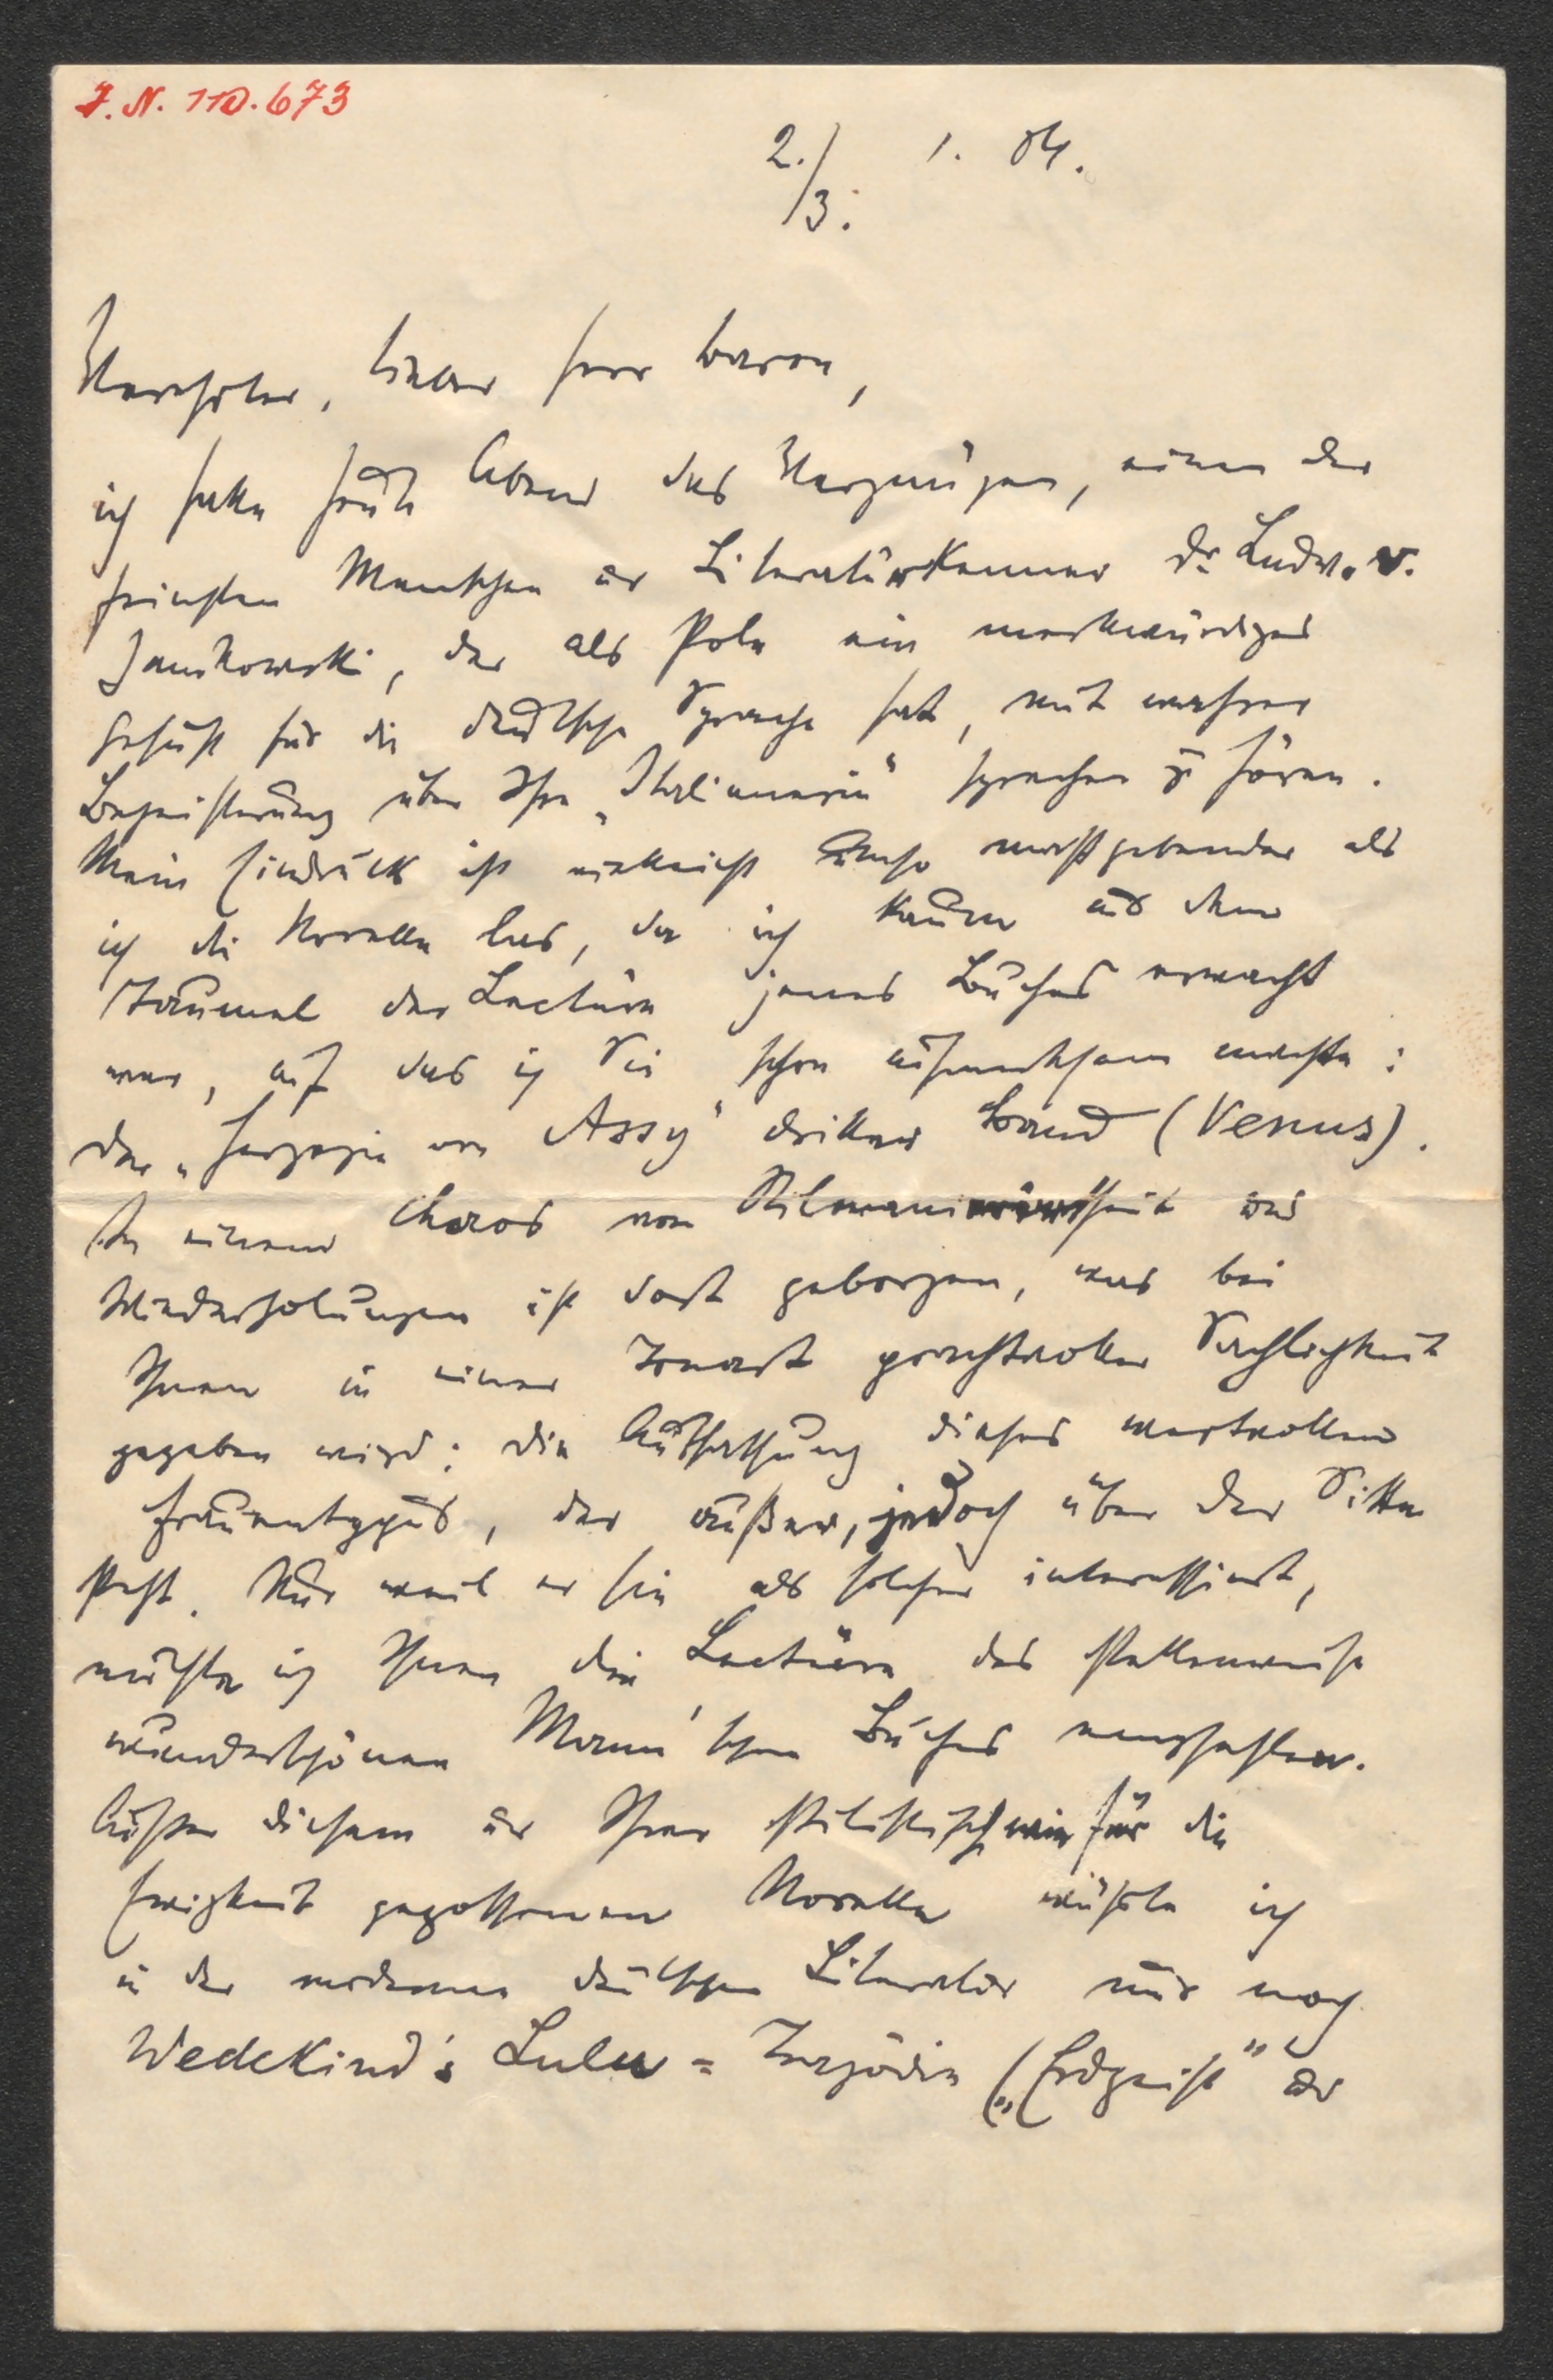 I. N. 110.673
2./3. 1. 04.
Verehrter, lieber Herr Baron,
ich hatte heute Abend das Vergnügen, einen der
feinsten Menschen u Literaturkenner Dr Ludw. v.
Janikowski, der als Pole ein merkwürdiges
Gefühl für die deutsche Sprache hat, mit wahrer
Begeisterung über Ihre „Italienerin“ sprechen zu hören.
Mein Eindruck ist vielleicht umso maßgebender als
ich die Novelle las, da ich kaum aus dem
Taumel der Lectüre jenes Buches erwacht
war, auf das ich Sie schon aufmerksam machte:
der „Herzogin von Assy“ dritter Band (Venus).
In einem Chaos von Stilmanierirtheit und
Wiederholungen ist dort geborgen, was bei
Ihnen in einer Tonart prachtvoller Sachlichkeit
gegeben wird: die Auffassung dieses wertvollen
Frauentypus, der außer, jedoch über der Sitte
steht. Nur weil er Sie als solcher interessirt,
möchte ich Ihnen die Lectüre des stellenweise
wunderschönen Mann'schen Buches empfehlen.
Außer diesem u Ihrer stilistisch wie für die
Ewigkeit gegossenen Novelle wüßte ich
in der modernen deutschen Literatur nur noch
Wedekind's Lulu-Tragödie („Erdgeist“ und